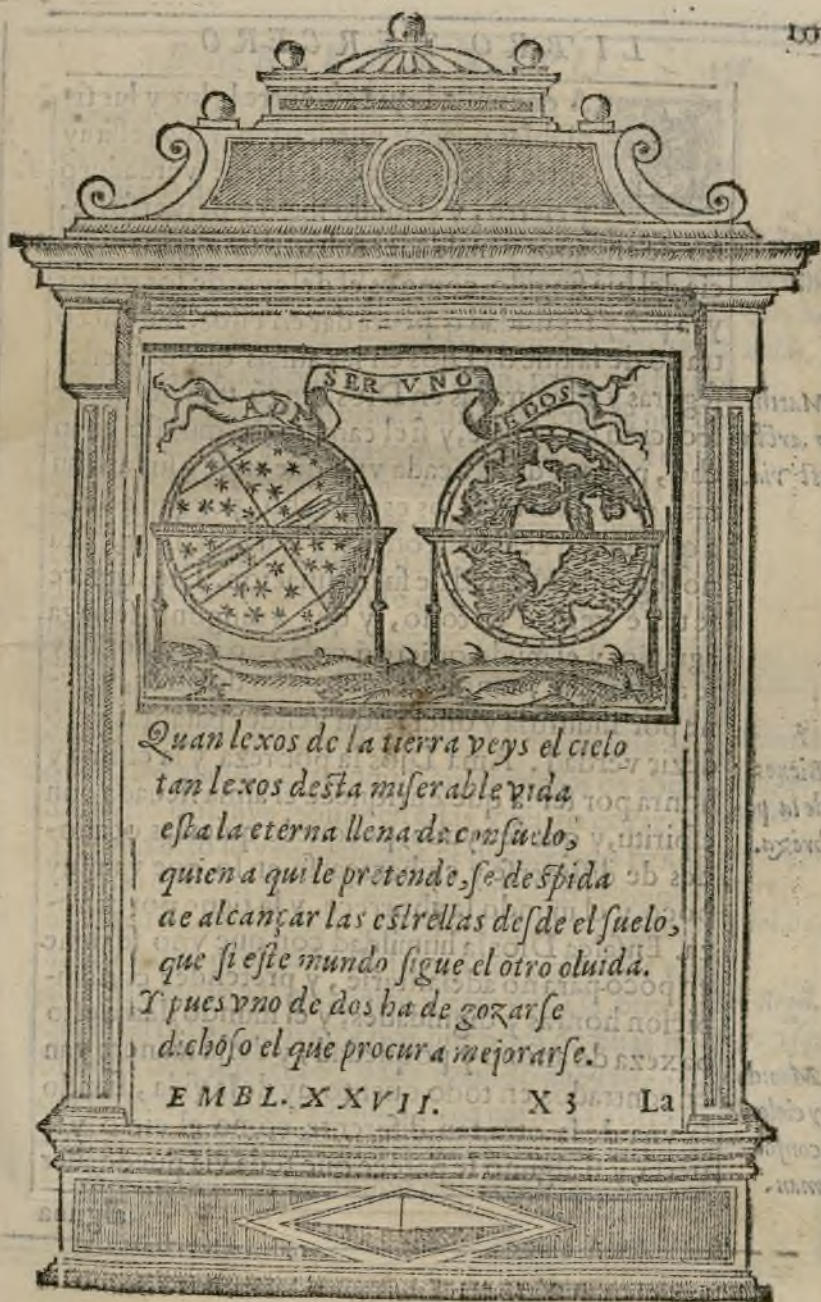 A DE SER VNO DE DOS
Quan lexos de la tierra veys el cielo
tan lexos desta miserable vida
esta la eterna llena de consuelo,
quien a qui le pretende, se despida
de alcançar las estrellas desde el suelo,
que si este mundo sigue el otro oluida.
Y pues vno de dos ha de gozarse
dichoso el que procura mejorarse.
EMBL. XXVII. X 3 La